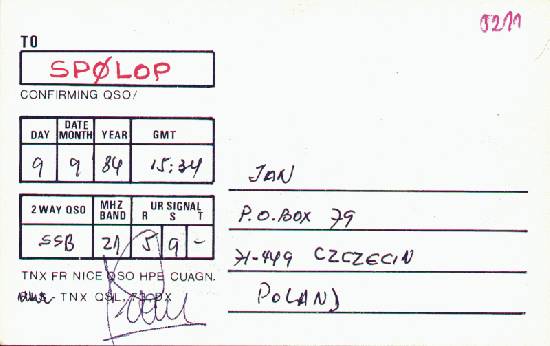 TO
SPØLOP
CONFIRMING QSO/
DAY DATE MONTH YEAR GMT
9 9 84 15:34
2WAY QSO MHZ BAND UR SIGNAL R S T
SSB 21 5 9 -
TNX FR NICE QSO HPE CUAGN.
TNX QSL, 73
JAN
P.O.BOX 79
71-449 CZCZECIN
POLAND